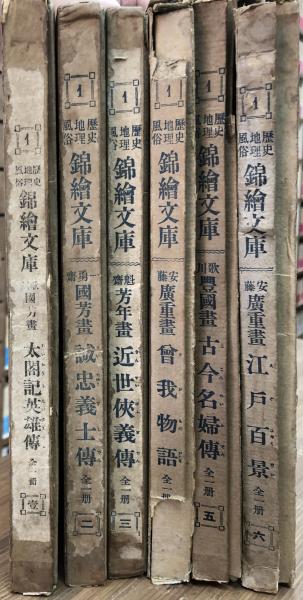 1
歴史
地理
風俗
錦繪文庫
國芳畫
太閤記英雄傳
全一册
壹
1
歴史
地理
風俗
錦繪文庫
一勇齋
國芳畫
誠忠義士傳
全一册
二
1
歴史
地理
風俗
錦繪文庫
魁齋
芳年畫
近世俠義傳
全一册
三
1
歴史
地理
風俗
錦繪文庫
安藤
廣重畫
曾我物語
全一
1
歴史
地理
風俗
錦繪文庫
歌川
豐國畫
古今名婦傳
全一册
五
1
歴史
地理
風俗
錦繪文庫
安藤
廣重畫
江戸百景
全一册
六